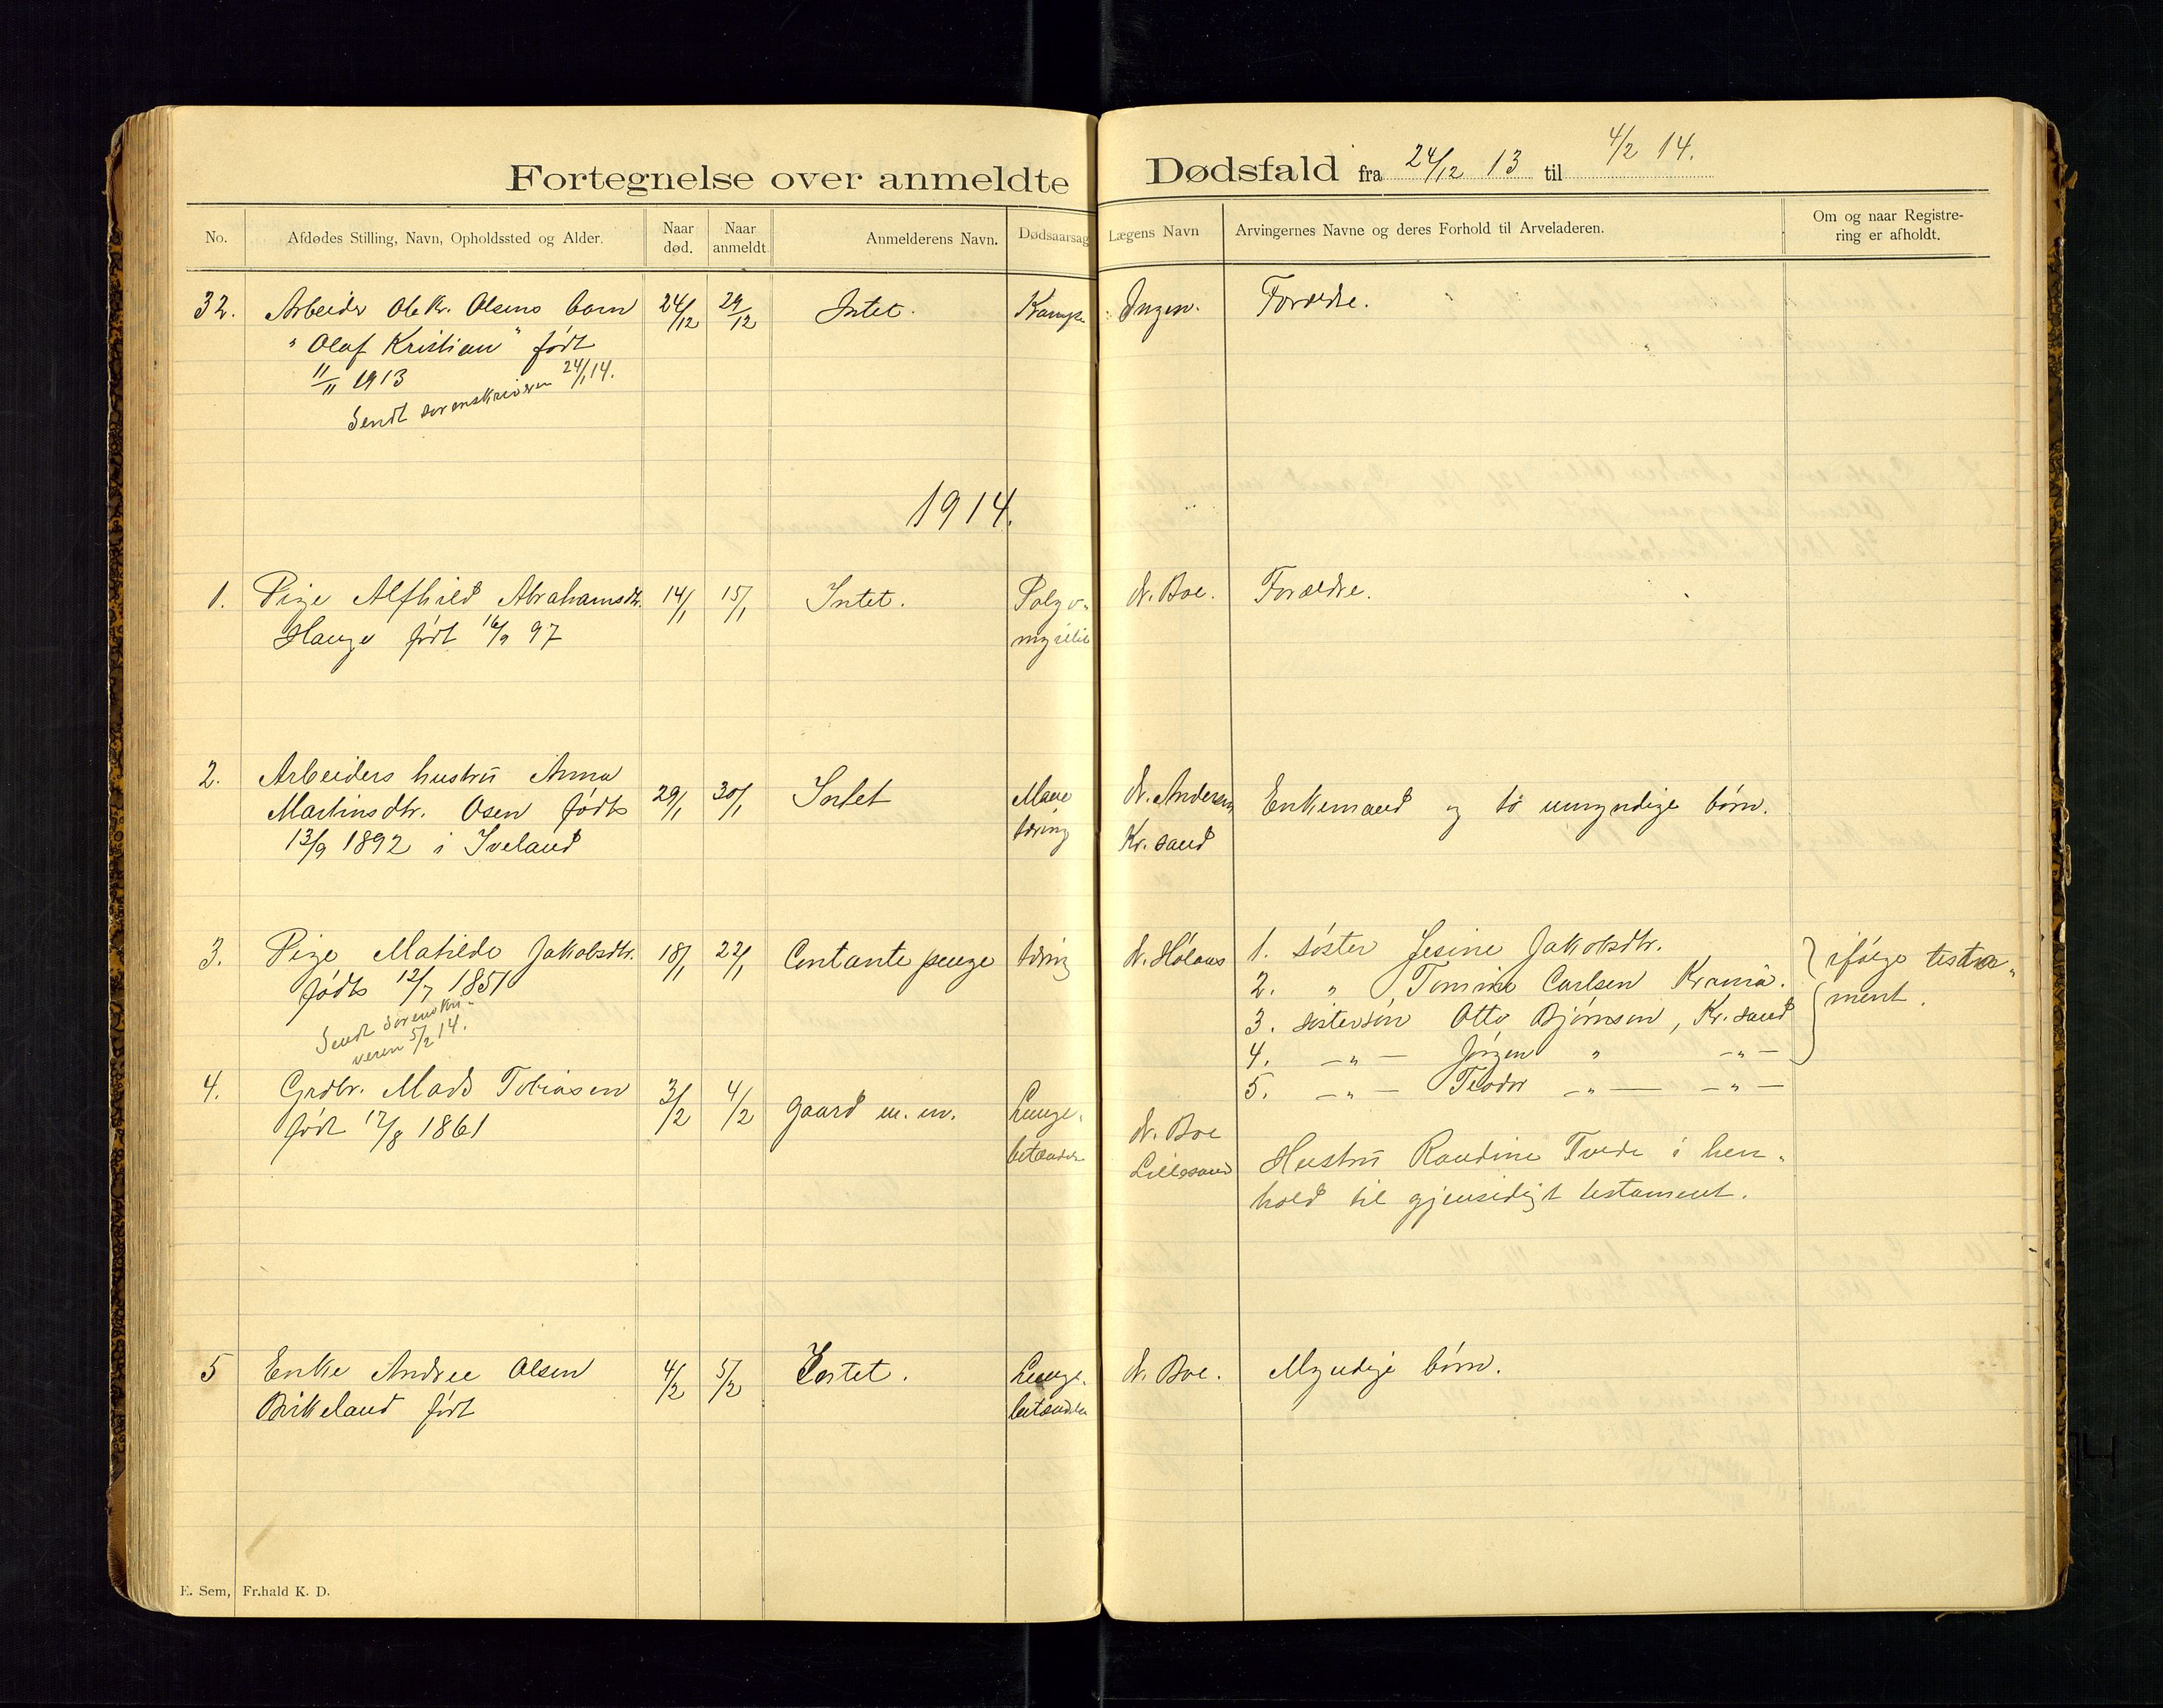 Fortegnelse over anmeldte Dødsfald fra 24/12 13 til 4/2 14.
No. Afdødes Stilling, Navn, Opholdssted og Alder. Naar død. Naar anmeldt Anmelderens Navn. Dødsaarsag Lægens Navn Arvingernes Navne og deres Forhold til Arveladeren. Om og naar Registrering er afholdt.
32. Arbeider Ole Kr. Olsens barn 24/12 29/12 Intet. Krampe Ingen. Forældre.
"Olaf Kristian" født
11/11 1913
Sendt sorenskriveren 24/1 14.
1914.
1. Pige Alfhild Abrahamsdtr. 14/1 15/1 Intet. Polyo- dr. Boe. Forældre.
Hauge født 16/9 97
2. Arbeiders hustru Anna 29/1 30/1 Intet Mave dr. Andersen Enkemand og to umyndige børn.
Martinsdtr. Osen født tæring Kr. sand
13/9 1892 i Iveland
3. Pige Mathilde Jakobsdtr. 18/1 22/1 Contante penge tæring dr. 1. søster Jesine Jakobsdtr. ifølge testa-
født 12/7 1851 2. " Tomine Carlsen Krania. ment.
Sendt sorenskri-
veren 5/2 14.
3. søstersøn Otto Bjørnsen, Kr. sand
4. -"- Jørgen " -"-
5. -"- Teodor -"- -"-
4. Grdbr. Mads Tobiasen 3/2 4/2 gaard m. m. Lunge- dr. Boe
født 17/8 1861 betændelse Lillesand Hustru Randine Tvede i hen-
hold til gjensidigt testament.
5 Enke Andrea Olsen 4/2 5/2 Intet. Lunge- dr. Boe. Myndige børn.
Birkeland født betændelse
E. Sem, Fr.hald K. D.